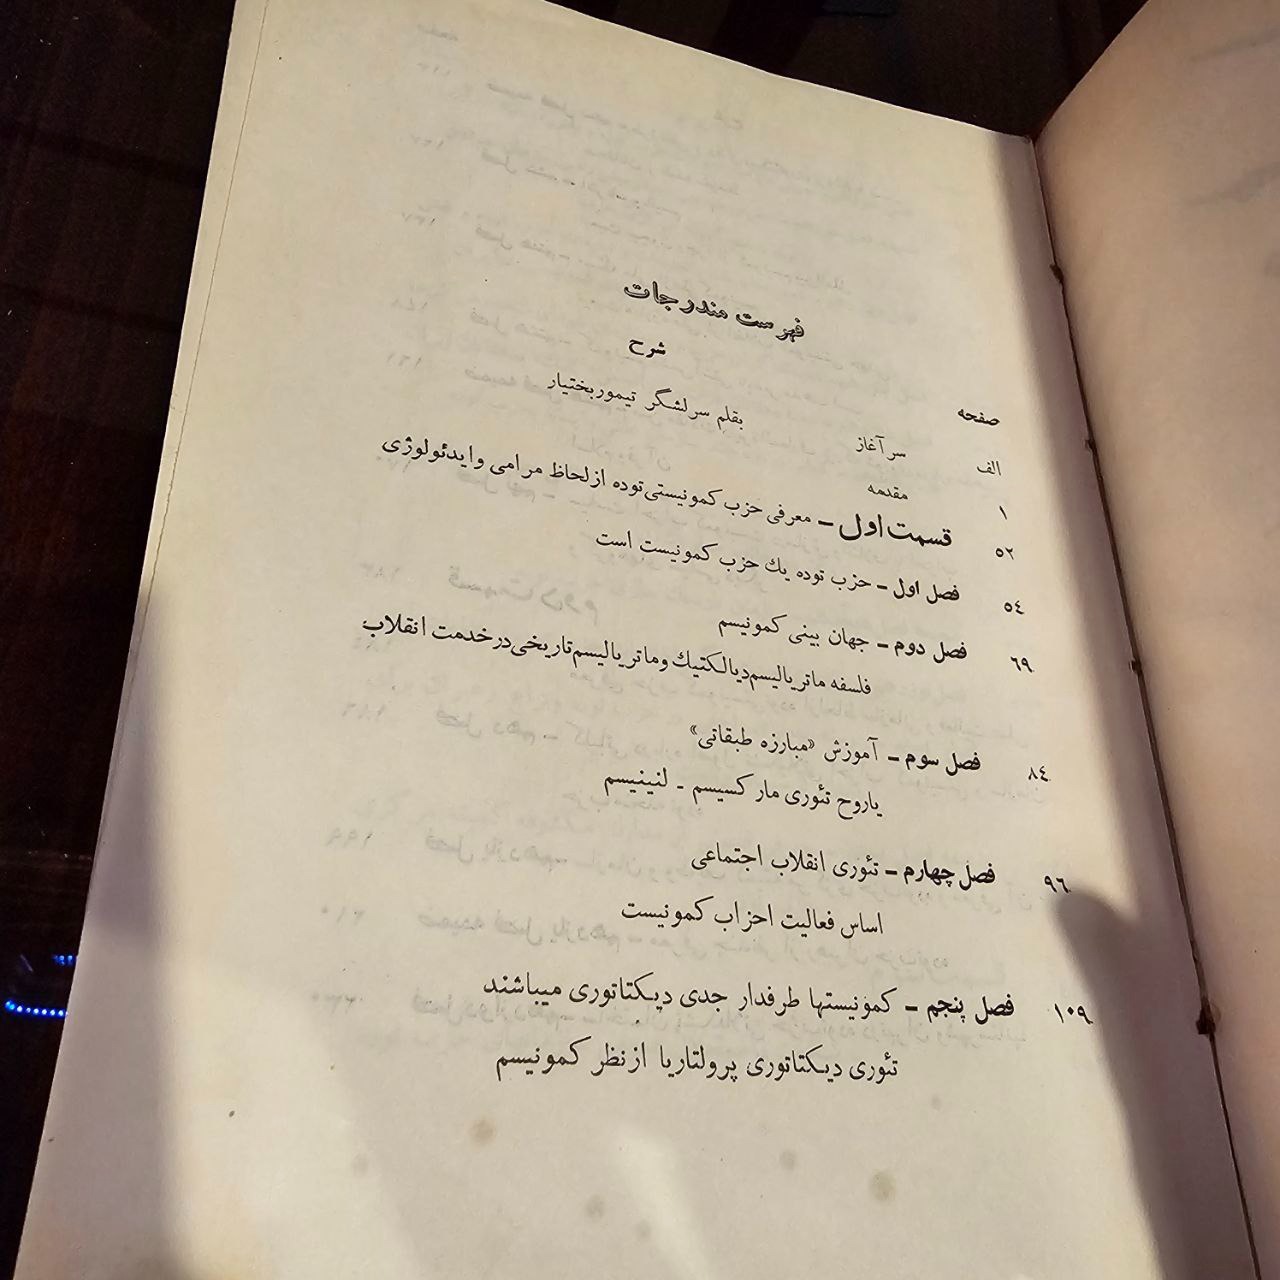 فهرست مندرجات
شرح
صفحه
الف سرآغاز بقلم سرلشگر تیموربختیار
۱ مقدمه
۵۲ قسمت اول ـ معرفی حزب کمونیستی توده ازلحاظ مرامی وایدئولوژی
۵٤ فصل اول ـ حزب توده یك حزب کمونیست است
۶۹ فصل دوم ـ جهان بینی کمونیسم
فلسفه ماتریالیسم دیالکتیك وماتریالیسم تاریخی درخدمت انقلاب
۸٤ فصل سوم ـ آموزش «مبارزه طبقاتی»
یاروح تئوری مارکسیسم ـ لنینیسم
۹۶ فصل چهارم ـ تئوری انقلاب اجتماعی
اساس فعالیت احزاب کمونیست
۱۰۹ فصل پنجم ـ کمونیستها طرفدار جدی دیکتاتوری میباشند
تئوری دیکتاتوری پرولتاریا ازنظر کمونیسم